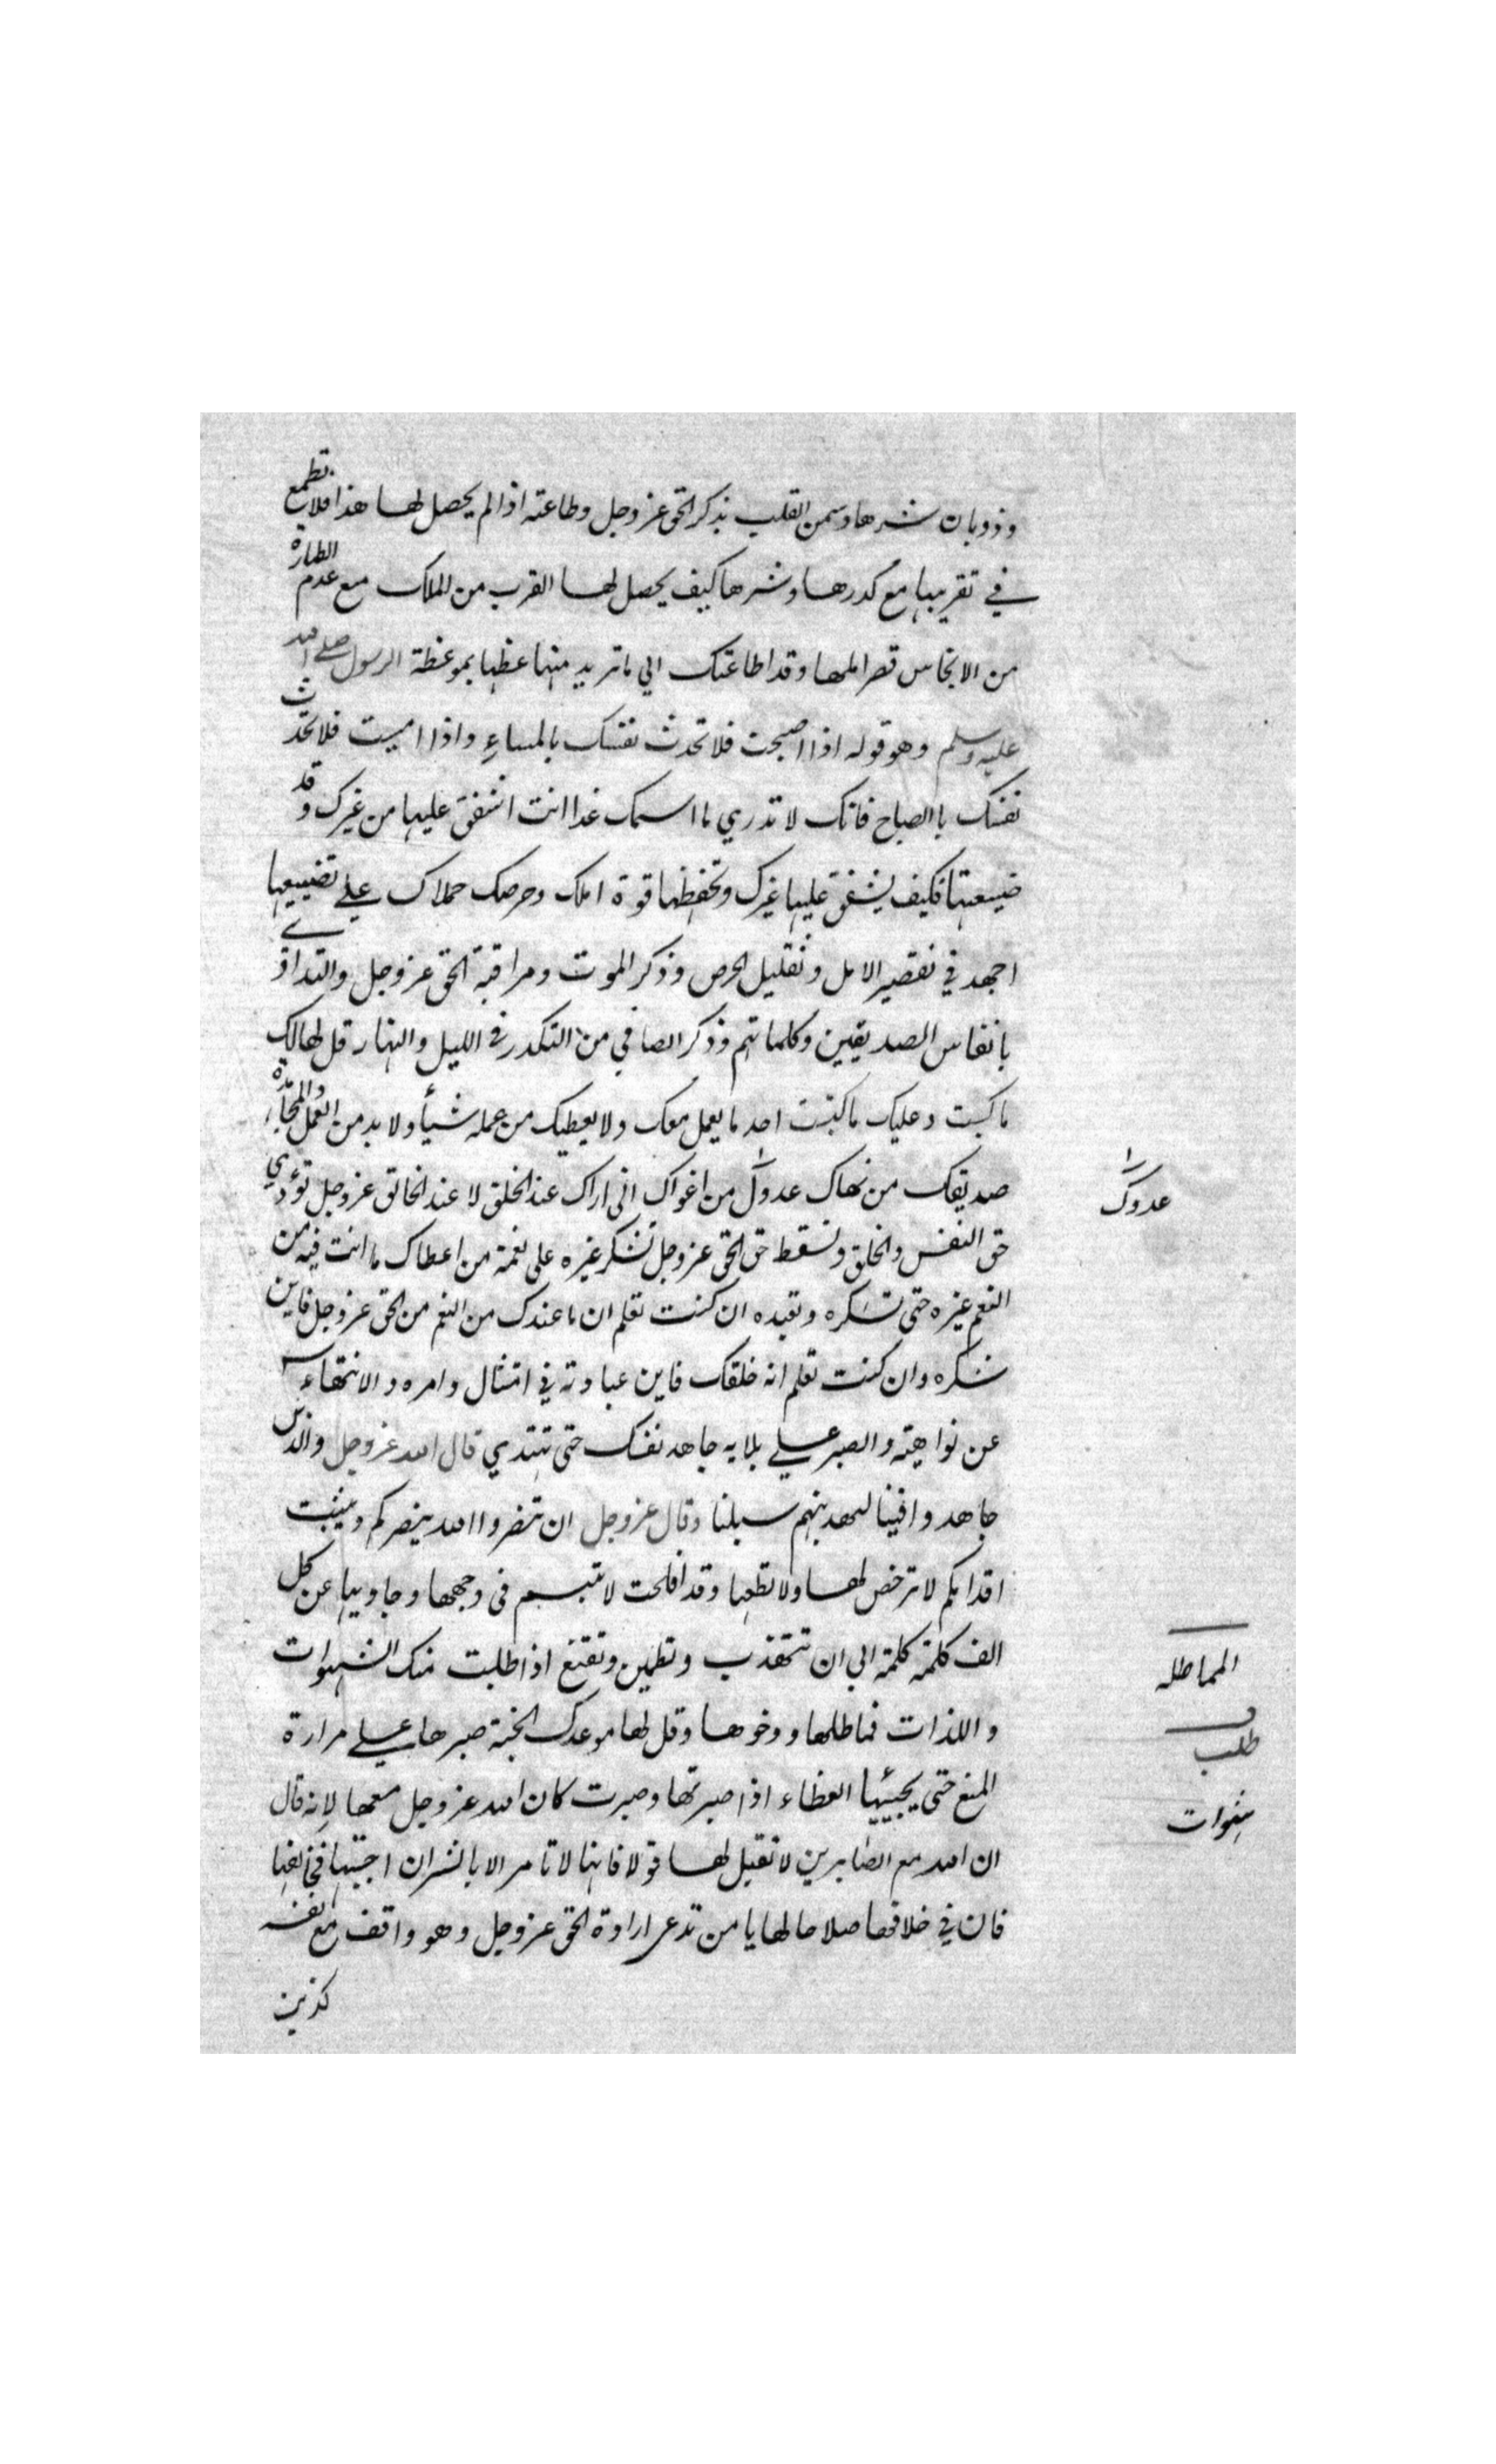 وذوبان شرها وسمن القلب بذكر الحق عز وجل وطاعته اذا لم يحصل لها هذا فلا تطمع
في تقريبها مع كدرها وشرها كيف يحصل لها القرب من الملك مع عدم الطهارة
من الانجاس قصر املها وقد اطاعتك الي ما تريد منها عظها بموعظة الرسول صلى الله
عليه وسلم وهو قوله اذا اصبحت فلا تحدث نفسك بالمساء واذا امسيت فلا تحدث
نفسك باالصباح فانك لا تدري ما اسمك غدا انت اشفق عليها من غيرك وقد
ضيعتها فكيف يشفق عليها غيرك وتحفظها قوة املك وحرصك حملاك علي تضييعها
اجهد في تقصير الامل وتقليل الحرص وذكر الموت ومراقبة الحق عز وجل والتداوي
بانفاس الصديقين وكلماتهم وذكر الصافي من التكدر في الليل والنهار قل لها لك
ما كسبت وعليك ما كتبت احد ما يعمل معك ولا يعطيك من عمله شيأ ولا بد من العمل والمجاهدة
صديقك من نهاك عدوك من اغواك اني اراك عند الخلق لا عند الخالق عز وجل تؤدي
حق النفس والخلق وتسقط حق الحق عز وجل تشكر غيره على نعمة من اعطاك ما انت فيه من
النعم غيره حتى تشكره وتعبده ان كنت تعلم ان ما عندك من النعم من الحق عز وجل فاين
شكره وان كنت تعلم انه خلقك فاين عبادته في امتثال وامره والانتهاء
عن نواهيه والصبر علي بلايه جاهد نفسك حتى تهتدي قال الله عز وجل والذين
جاهدوا فينا لنهدينهم سبلنا وقال عز وجل ان تنصروا الله ينصركم ويثبت
اقدامكم لا ترخص لها ولا تطعها وقد افلحت لا تبسم في وجهها وجاوبها عن كل
الف كلمة كلمة الي ان تتهذب وتطمين وتقنع اذا طلبت منك الشهوات
واللذات فماطلها وخوها وقل لها موعدك الجنة صبرها علي مرارة
المنع حتى يجيئها العطاء اذا صبرتها وصبرت كان الله عز وجل معها لانه قال
ان الله مع الصابرين لا تقبل لها قولا فانها لا تامر الا بالشر ان اجبتها فخالفها
فان في خلافها صلاحا لها يا من تدعى ارادة الحق عز وجل وهو واقف مع نفسه
كذبت
عدوك
المماطله
طلب
شهوات